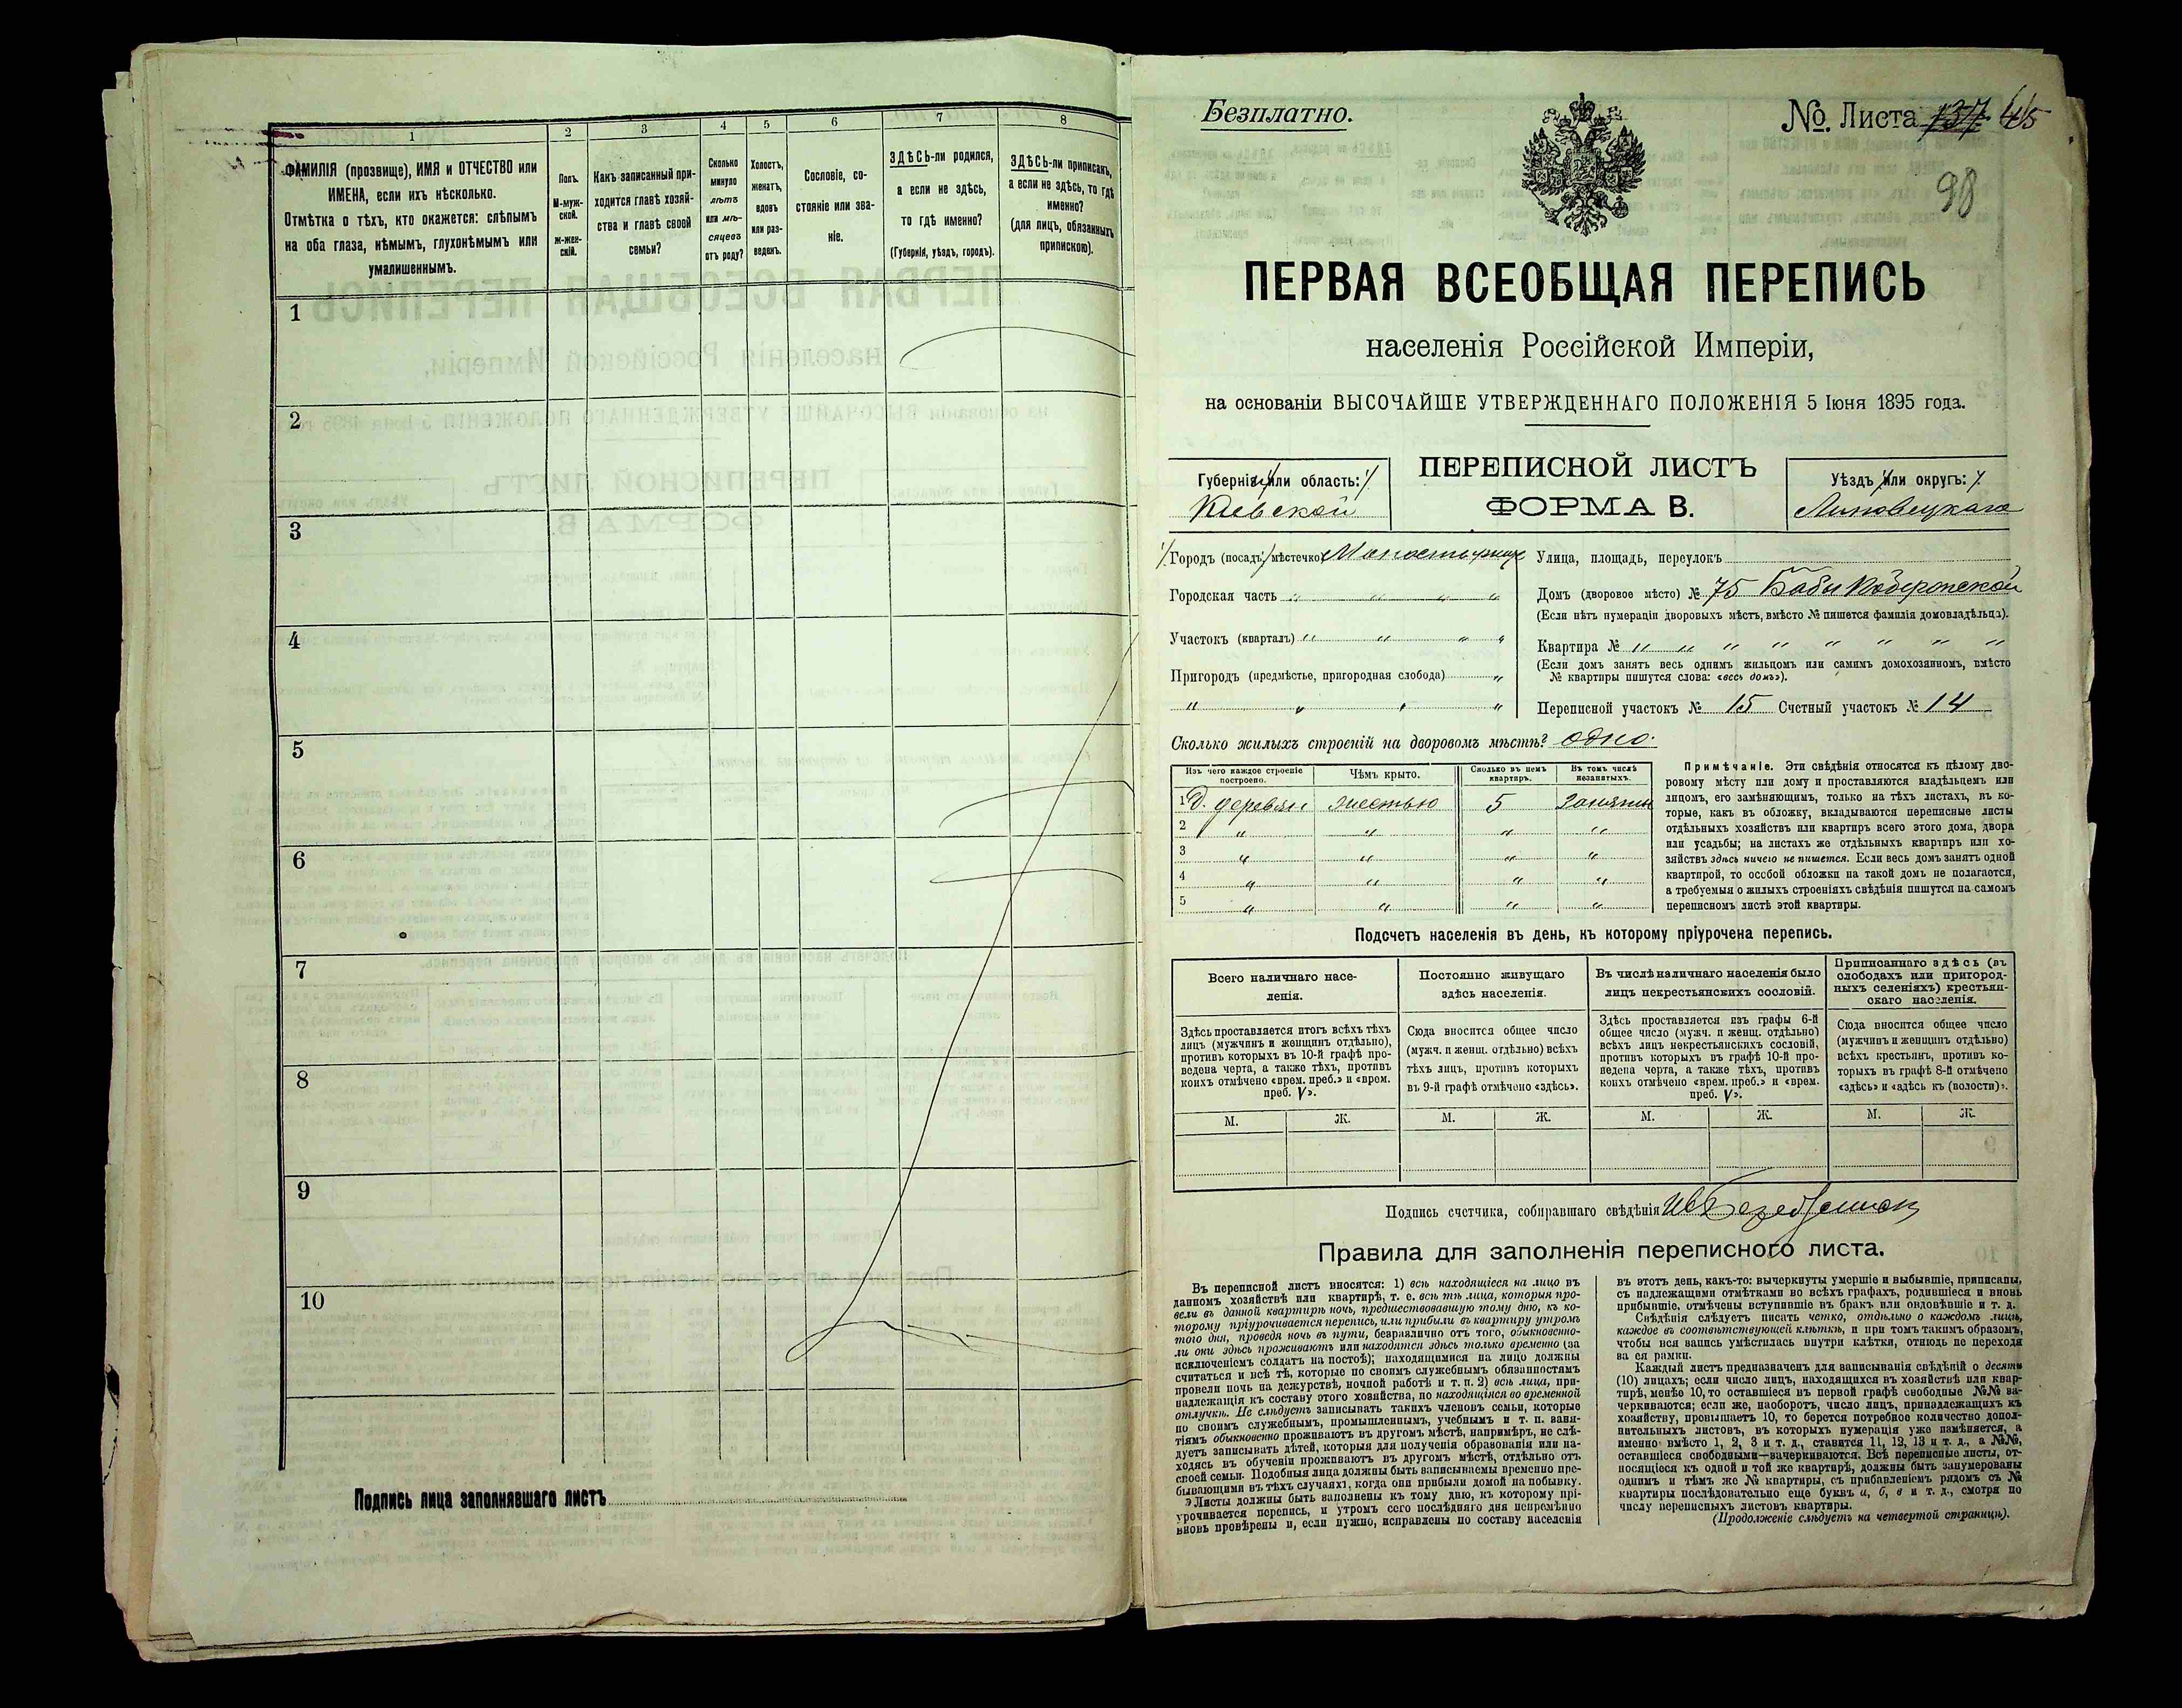 1
2
3
4
5
6
7
8
ФАМИЛІЯ (прозвище), ИМЯ и ОТЧЕСТВО или
ИМЕНА, если ихъ нѣсколько.
Отмѣтка о тѣхъ, кто окажется: слѣпымъ
на оба глаза, нѣмымъ, глухонѣмымъ или
умалишеннымъ.
Полъ.
М-муж-
ской.
Ж-жен-
скій.
Какъ записанный при-
ходится главѣ хозяй-
ства и главѣ своей
семьи?
Сколько
минуло
лѣтъ
или мѣ-
сяцевъ
отъ роду?
Холостъ,
женатъ,
вдовъ
или раз-
веденъ.
Сословіе, со-
стояніе или зва-
ніе.
ЗДѢСЬ-ли родился,
а если не здѣсь,
то гдѣ именно?
(Губернія, уѣздъ, городъ).
ЗДѢСЬ-ли приписанъ,
а если не здѣсь, то гдѣ
именно?
(для лицъ, обязанныхъ
припискою).
1
2
3
4
5
6
7
8
9
10
Подпись лица заполнявшаго листъ
Безплатно.
№. Листа 137 45
98
ПЕРВАЯ ВСЕОБЩАЯ ПЕРЕПИСЬ
населенія Россійской Имперіи,
на основаніи ВЫСОЧАЙШЕ УТВЕРЖДЕННАГО ПОЛОЖЕНІЯ 5 Іюня 1895 года.
Губернія или область:
Кіевской
ПЕРЕПИСНОЙ ЛИСТЪ
ФОРМА В.
Уѣздъ или округъ:
Липовецкаго
Городъ (посадъ, мѣстечко) Монастырище
Городская часть " " " "
Участокъ (кварталъ) " " " "
Пригородъ (предмѣстье, пригородная слобода) "
" " " "
Улица, площадь, переулокъ
Домъ (дворовое мѣсто) № 75
(Если нѣтъ нумераціи дворовыхъ мѣстъ, вмѣсто № пишется фамилія домовладѣльца).
Квартира № " " " " " " " "
(Если домъ занятъ весь однимъ жильцомъ или самимъ домохозяиномъ, вмѣсто
№ квартиры пишутся слова: «весь домъ»).
Переписной участокъ № 15 Счетный участокъ № 14
Сколько жилыхъ строеній на дворовомъ мѣстѣ? одно.
Изъ чего каждое строеніе
построено.
Чѣмъ крыто.
Сколько въ немъ
квартиръ.
Въ томъ числѣ
незанятыхъ.
1 Д. деревян жестью 5 Заняты
2 " " " "
3 " " " "
4 " " " "
5 " " " "
Примѣчаніе. Эти свѣдѣнія относятся къ цѣлому дво-
ровому мѣсту или дому и проставляются владѣльцемъ или
лицомъ, его замѣняющимъ, только на тѣхъ листахъ, въ ко-
торые, какъ въ обложку, вкладываются переписные листы
отдѣльныхъ хозяйствъ или квартиръ всего этого дома, двора
или усадьбы; на листахъ же отдѣльныхъ квартиръ или хо-
зяйствъ здѣсь ничего не пишется. Если весь домъ занятъ одной
квартирой, то особой обложки на такой домъ не полагается,
а требуемыя о жилыхъ строеніяхъ свѣдѣнія пишутся на самомъ
переписномъ листѣ этой квартиры.
Подсчетъ населенія въ день, къ которому пріурочена перепись.
Всего наличнаго насе-
ленія.
Постоянно живущаго
здѣсь населенія.
Въ числѣ наличнаго населенія было
лицъ некрестьянскихъ сословій.
Приписаннаго здѣсь (въ
слободахъ или пригород-
ныхъ селеніяхъ) крестьян-
скаго населенія.
Здѣсь проставляется итогъ всѣхъ тѣхъ
лицъ (мужчинъ и женщинъ отдѣльно),
противъ которыхъ въ 10-й графѣ про-
ведена черта, а также тѣхъ, противъ
коихъ отмѣчено «врем. преб.» и «врем.
преб. V».
Сюда вносится общее число
(мужч. и женщ. отдѣльно) всѣхъ
тѣхъ лицъ, противъ которыхъ
въ 9-й графѣ отмѣчено «здѣсь».
Здѣсь проставляется изъ графы 6-й
общее число (мужч. и женщ. отдѣльно)
всѣхъ лицъ некрестьянскихъ сословій,
противъ которыхъ въ графѣ 10-й про-
ведена черта, а также тѣхъ, противъ
коихъ отмѣчено «врем. преб.» и «врем.
преб. V».
Сюда вносится общее число
(мужчинъ и женщинъ отдѣльно)
всѣхъ крестьянъ, противъ ко-
торыхъ въ графѣ 8-й отмѣчено
«здѣсь» и «здѣсь къ (волости)».
М. Ж. М. Ж. М. Ж. М. Ж.
Подпись счетчика, собиравшаго свѣдѣнія
Правила для заполненія переписного листа.
Въ переписной листъ вносятся: 1) всѣ находящіеся на лицо въ
данномъ хозяйствѣ или квартирѣ, т. е. всѣ тѣ лица, которыя про-
вели въ данной квартирѣ ночь, предшествовавшую тому дню, къ ко-
торому пріурочивается перепись, или прибыли въ квартиру утромъ
того дня, проведя ночь въ пути, безразлично отъ того, обыкновенно-
ли они здѣсь проживаютъ или находятся здѣсь только временно (за
исключеніемъ солдатъ на постоѣ); находящимися на лицо должны
считаться и всѣ тѣ, которые по своимъ служебнымъ обязанностямъ
провели ночь на дежурствѣ, ночной работѣ и т. п. 2) всѣ лица, при-
надлежащія къ составу этого хозяйства, но находящіяся во временной
отлучкѣ. Не слѣдуетъ записывать такихъ членовъ семьи, которые
по своимъ служебнымъ, промышленнымъ, учебнымъ и т. п. заня-
тіямъ обыкновенно проживаютъ въ другомъ мѣстѣ, напримѣръ, не слѣ-
дуетъ записывать дѣтей, которыя для полученія образованія или на-
ходясь въ обученіи проживаютъ въ другомъ мѣстѣ, отдѣльно отъ
своей семьи. Подобныя лица должны быть записываемы временно пре-
бывающими въ тѣхъ случаяхъ, когда они прибыли домой на побывку.
Листы должны быть заполнены къ тому дню, къ которому прі-
урочивается перепись, и утромъ сего послѣдняго дня непремѣнно
вновь провѣрены и, если нужно, исправлены по составу населенія
въ этотъ день, какъ-то: вычеркнуты умершіе и выбывшіе, приписаны,
съ надлежащими отмѣтками во всѣхъ графахъ, родившіеся и вновь
прибывшіе, отмѣчены вступившіе въ бракъ или овдовѣвшіе и т. д.
Свѣдѣнія слѣдуетъ писать четко, отдѣльно о каждомъ лицѣ,
каждое въ соотвѣтствующей клѣткѣ, и при томъ такимъ образомъ,
чтобы вся запись умѣстилась внутри клѣтки, отнюдь не переходя
за ея рамки.
Каждый листъ предназначенъ для записыванія свѣдѣній о десяти
(10) лицахъ; если число лицъ, находящихся въ хозяйствѣ или квар-
тирѣ, менѣе 10, то оставшіеся въ первой графѣ свободные №№ за-
черкиваются; если же, наоборотъ, число лицъ, принадлежащихъ къ
хозяйству, превышаетъ 10, то берется потребное количество допол-
нительныхъ листовъ, въ которыхъ нумерація уже измѣняется, а
именно: вмѣсто 1, 2, 3 и т. д., ставится 11, 12, 13 и т. д., а №№,
оставшіеся свободными—зачеркиваются. Всѣ переписные листы, от-
носящіеся къ одной и той же квартирѣ, должны быть занумерованы
однимъ и тѣмъ же № квартиры, съ прибавленіемъ рядомъ съ №
квартиры послѣдовательно еще буквъ а, б, в и т. д., смотря по
числу переписныхъ листовъ квартиры.
(Продолженіе слѣдуетъ на четвертой страницѣ).